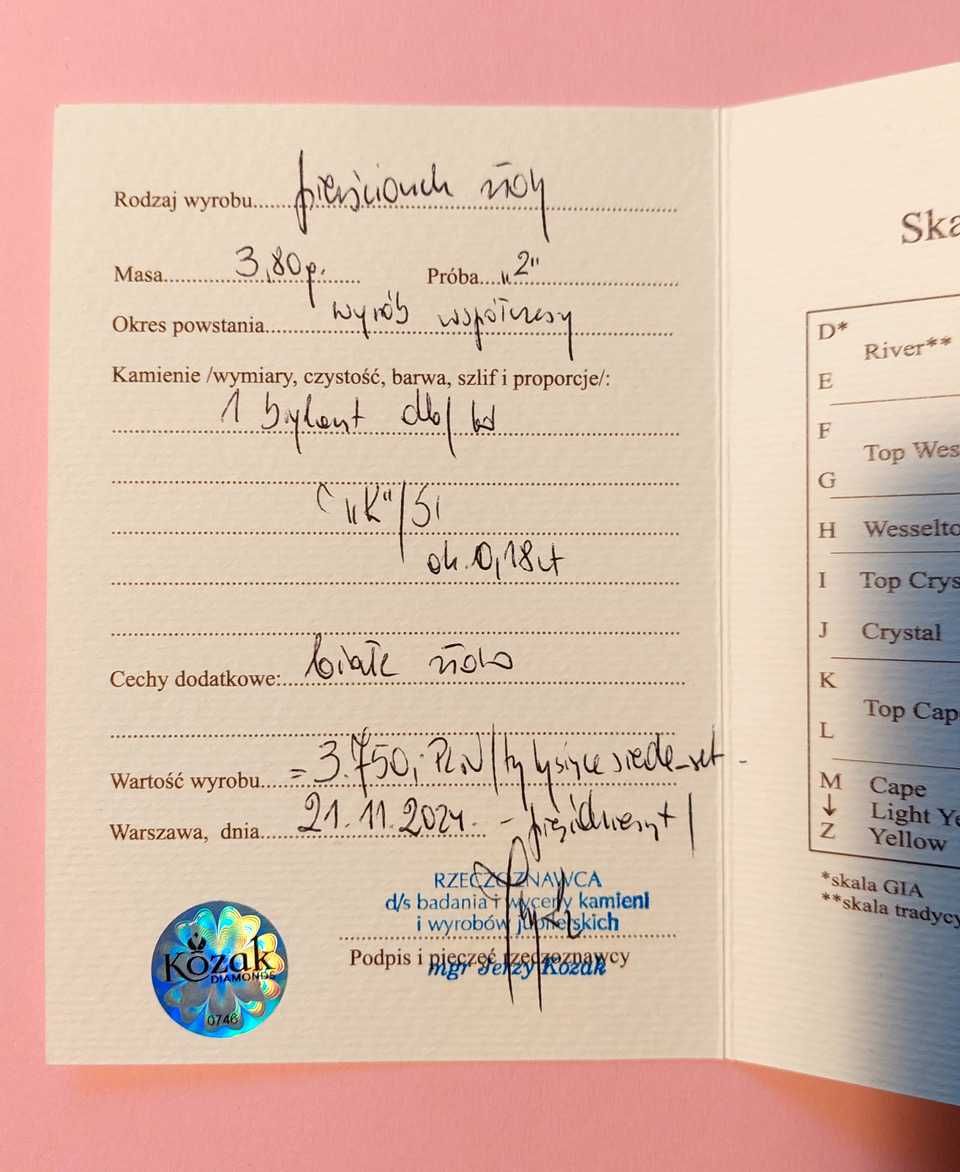 Rodzaj wyrobu pierścionek złoty
Masa 3,80 g. Próba „2"
Okres powstania wyrób współczesny
Kamienie /wymiary, czystość, barwa, szlif i proporcje/:
1 brylant
„K"/Si
ok. 0,18 ct
Cechy dodatkowe: białe złoto
Wartość wyrobu = 3.750,- PLN /trzy tysiące siedemset -
Warszawa, dnia 21.11.2024. - pięćdziesiąt/
RZECZOZNAWCA
d/s badania i wyceny kamieni
i wyrobów jubilerskich
Podpis i pieczęć rzeczoznawcy
mgr Jerzy Kozak
Kozak
DIAMONDS
0746
Ska
D* River**
E
F
Top Wes
G
H Wesselto
I Top Crys
J Crystal
K
Top Cap
L
M Cape
↓ Light Ye
Z Yellow
*skala GIA
**skala tradycy